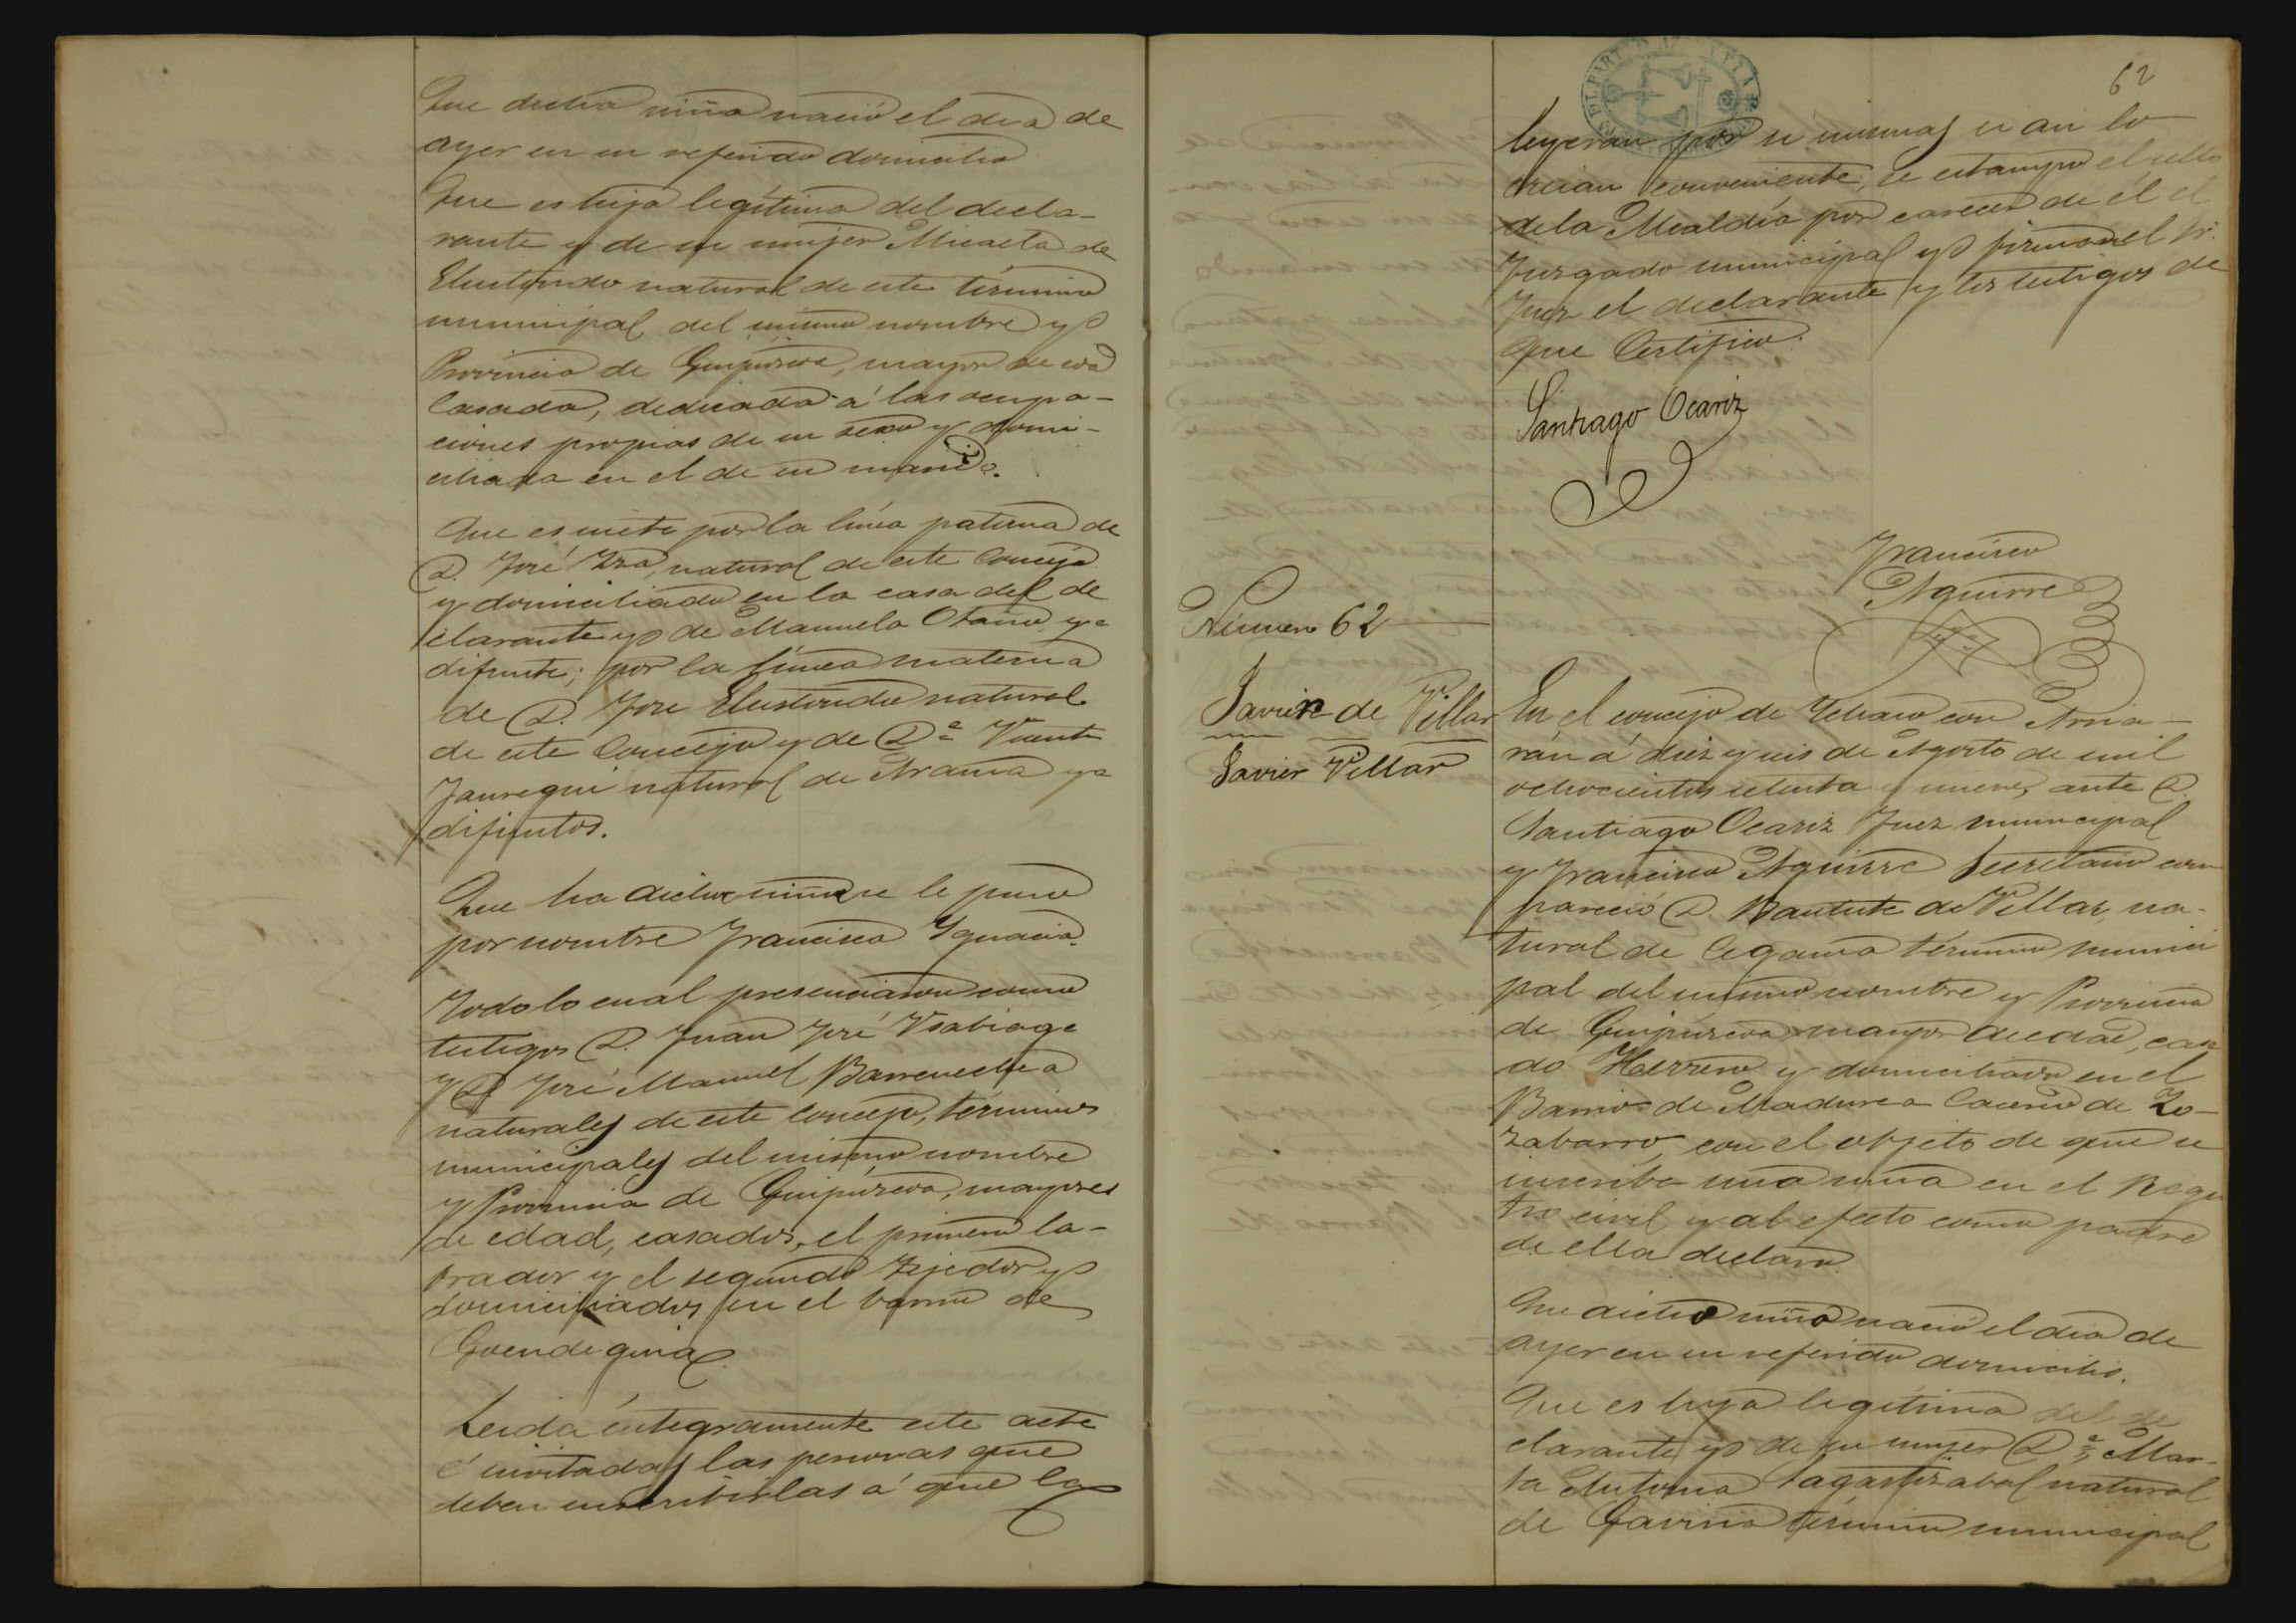 Que dicha niña nació el dia de
ayer en su referido domicilio
Que es hija legítima del decla-
rante y de su mujer Micaela de
Elustondo natural de este término
municipal del mismo nombre y
Provincia de Guipúzcoa, mayor de eda
Casada, dedicada á las ocupa-
ciones propias de su sexo y domi-
ciliada en el de su marido.
Que es nieta por la línea paterna de
D. José natural de este Concejo
y domiciliado en la casa del de
clarante y de Manuela Otaño ya
difunta; por la línea materna
de D. José Elustondo natural
de este Concejo y de Dª Vicenta
Jauregui natural de Arama ya
difuntos.
Que ha dicha niña se le puso
por nombre Francisca Ygnacia.
Todo lo cual presenciaron como
testigos D. Juan José Usabiaga
y D. José Manuel Barrenechea
naturales de este Concejo, términos
municipales del mismo nombre
y Provincia de Guipúzcoa, mayores
de edad, casados, el primero la-
brador y el segundo tejedor y
domiciliados en el barrio de
Goendeguia.
Leida íntegramente este acta
é invitadas las personas que
deben suscribirlas á que la
62
leyeran por si mismas si asi lo
creian conveniente, se estampó el sello
de la Alcaldía por carecer de él el
Juzgado municipal y firmaron el Sr.
Juez el declarante y los testigos de
que Certifico.
Santiago Ocariz
Francisco
Aguirre
Número 62
Javier de Villar
Javier Villar
En el concejo de Ychaso con Arria-
rán á diez y seis de Agosto de mil
ochocientos setenta y nueve, ante D.
Santiago Ocariz Juez municipal
y Francisco Aguirre Secretario com
pareció D. Bautista de Villar, na-
tural de Cegama término munici
pal del mismo nombre y Provincia
de Guipúzcoa mayor de edad, casa
do Herrero y domiciliado en el
Barrio de Madurea Caserío de Zo-
zabarro, con el objeto de que se
inscriba una niña en el Regis
tro civil y al efecto como padre
de ella declaro.
Que dicho niño nació el dia de
ayer en su referido domicilio.
Que es hija legítima del de
clarante y de su mujer Dª Mar-
ta Antonia Lagartizabal natural
de Gaviria término municipal